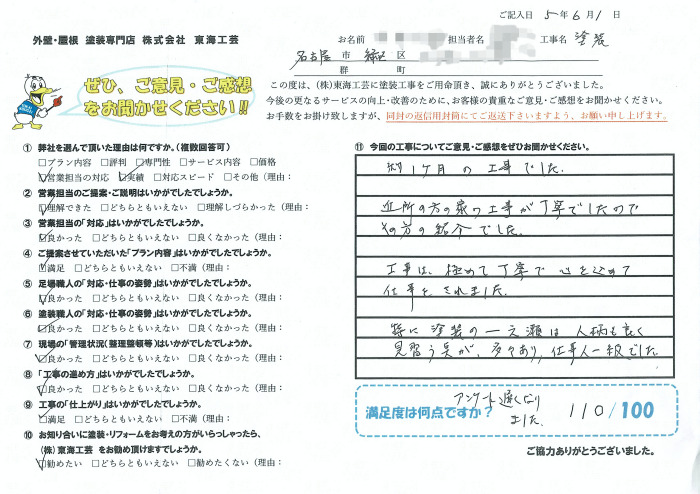 ご記入日 5年 6月 1日
外壁・屋根 塗装専門店 株式会社 東海工芸
お名前 担当者名 工事名 塗装
名古屋 市 緑 区
郡 町
ぜひ、ご意見・ご感想
をお聞かせください!!
この度は、(株)東海工芸に塗装工事をご用命頂き、誠にありがとうございました。
今後の更なるサービスの向上・改善のために、お客様の貴重なご意見・ご感想をお聞かせください。
お手数をお掛け致しますが、同封の返信用封筒にてご返送下さいますよう、お願い申し上げます。
① 弊社を選んで頂いた理由は何ですか。(複数回答可)
□プラン内容 □評判 □専門性 □サービス内容 □価格
☑営業担当の対応 ☑実績 □対応スピード □その他(理由:
② 営業担当のご提案・ご説明はいかがでしたでしょうか。
☑理解できた □どちらともいえない □理解しづらかった(理由:
③ 営業担当の「対応」はいかがでしたでしょうか。
☑良かった □どちらともいえない □良くなかった(理由:
④ ご提案させていただいた「プラン内容」はいかがでしたでしょうか。
☑満足 □どちらともいえない □不満(理由:
⑤ 足場職人の「対応・仕事の姿勢」はいかがでしたでしょうか。
☑良かった □どちらともいえない □良くなかった(理由:
⑥ 塗装職人の「対応・仕事の姿勢」はいかがでしたでしょうか。
☑良かった □どちらともいえない □良くなかった(理由:
⑦ 現場の「管理状況(整理整頓等)はいかがでしたでしょうか。
☑良かった □どちらともいえない □良くなかった(理由:
⑧ 「工事の進め方」はいかがでしたでしょうか。
☑良かった □どちらともいえない □良くなかった(理由:
⑨ 工事の「仕上がり」はいかがでしたでしょうか。
☑満足 □どちらともいえない □不満(理由:
⑩ お知り合いに塗装・リフォームをお考えの方がいらっしゃったら、
(株)東海工芸 をお勧め頂けますでしょうか。
☑勧めたい □どちらともいえない □勧めたくない(理由:
⑪ 今回の工事についてご意見・ご感想をぜひお聞かせください。
約1ヶ月の工事でした。
近所の方の家の工事が丁寧でしたので
その方の紹介でした。
工事は、極めて丁寧で心を込めて
仕事をされました。
特に塗装の一之瀬は人柄も良く
見習う点が、多々あり、仕事人一級でした。
アンケート遅くなり
ました。
満足度は何点ですか? 110/100
ご協力ありがとうございました。